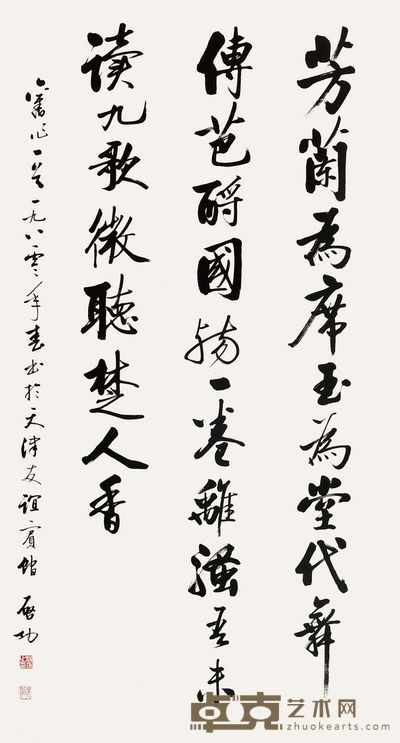 芳蘭為席玉為堂代舞
傳芭酹國殤一卷離騷吾未
讀九歌微聽楚人香
舊作一首一九八零年春書於天津友誼賓館 啓功
卓克艺术网
zhuokearts.com